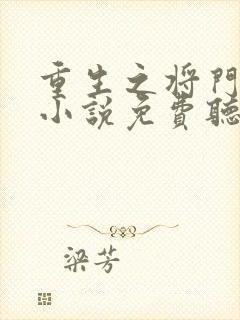 重生之将門
小説免費聽
梁芳